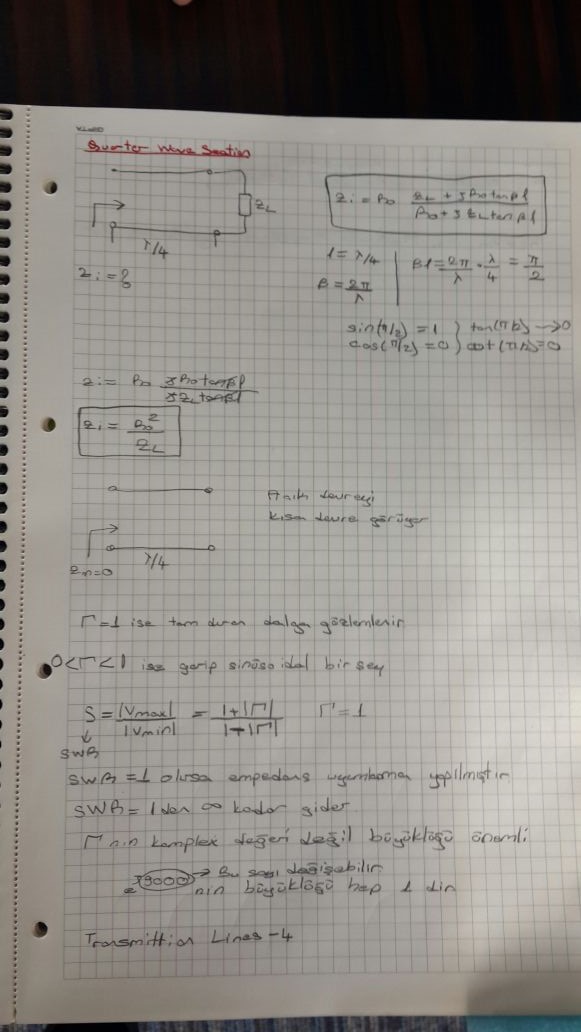 Quarter Wave Section
Zi = Ro ZL + jRo tanβl / Ro + jZL tanβl
ZL
λ/4
Zi = ?
l = λ/4
βl = 2π/λ . λ/4 = π/2
β = 2π/λ
sin(π/2) = 1 } tan(π/2) → 0
cos(π/2) = 0 } cot(π/2) = 0
Zi = Ro jRo tanβl / jZL tanβl
Zi = Ro² / ZL
Açık devreyi
kısa devre görüyor
λ/4
Zin=0
Γ=1 ise tam duran dalga gözlemlenir
0<Γ<1 ise garip sinüsoidal bir şey
S = |Vmax| / |Vmin| = 1+|Γ| / 1-|Γ| Γ=1
↓
SWR
SWR = 1 olursa empedans uyumlaması yapılmıştır
SWR = 1 den ∞ kadar gider
Γ nin komplex değeri değil büyüklüğü önemli
e^j9000 → Bu sayı değişebilir
nin büyüklüğü hep 1 dir
Transmittion Lines-4